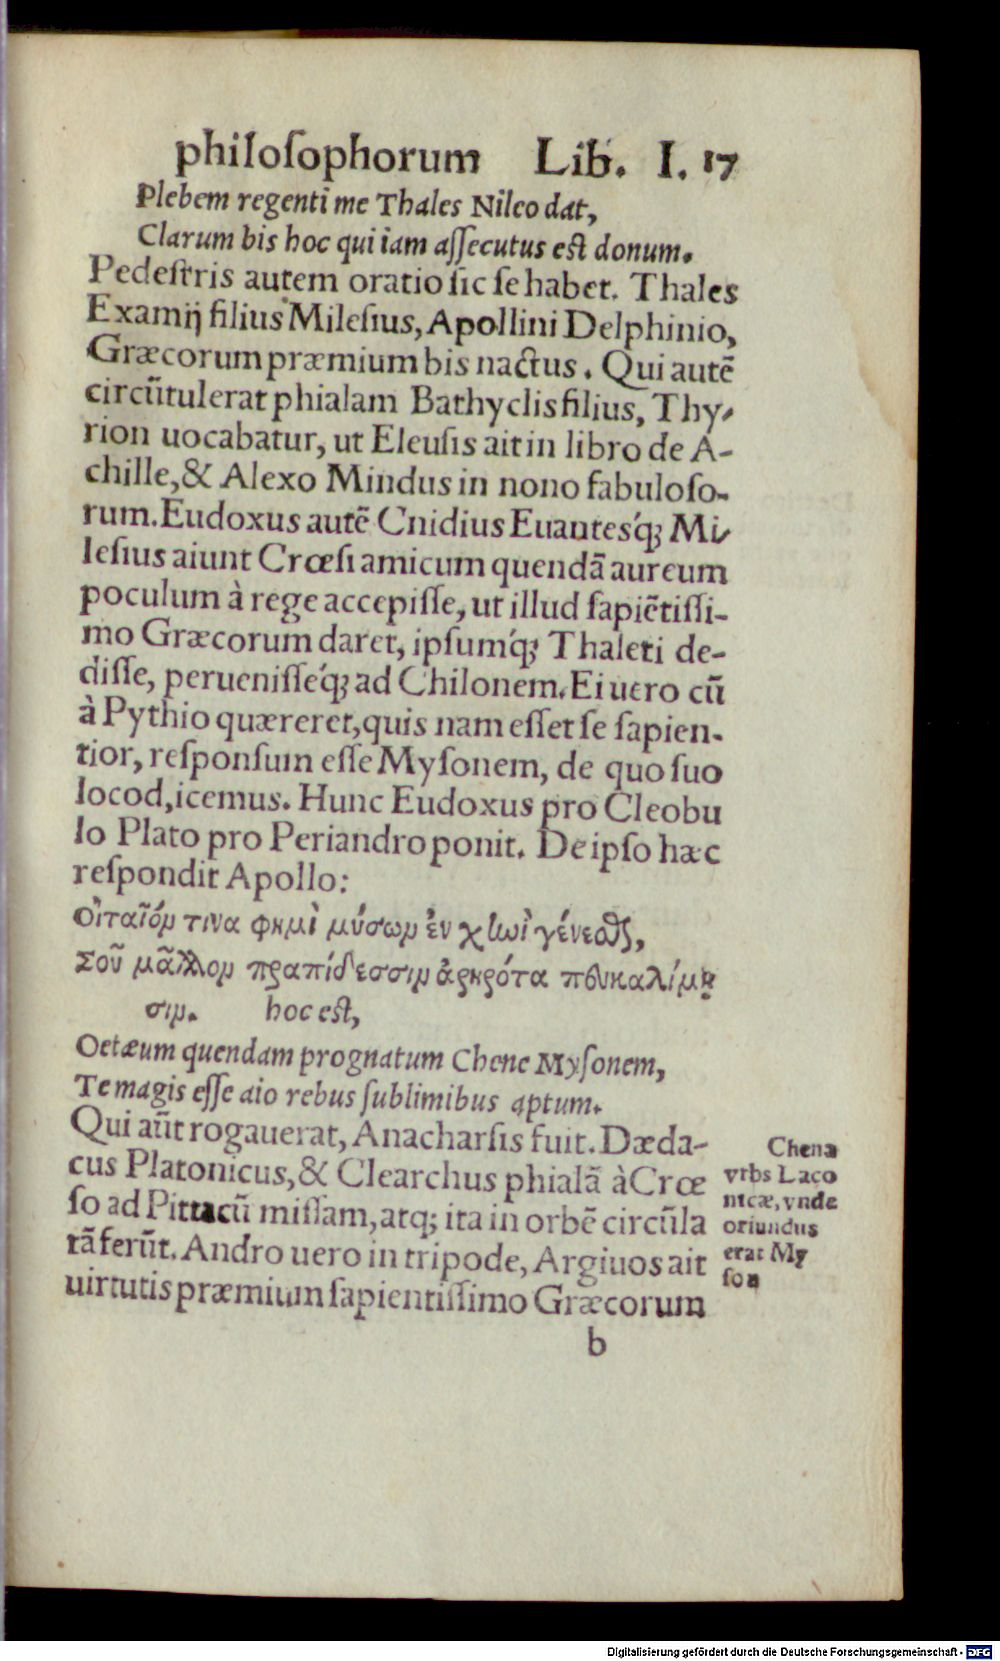 philosophorum Lib. I. 17
Plebem regenti me Thales Nileo dat,
Clarum bis hoc qui iam assecutus est donum.
Pedestris autem oratio sic se habet. Thales
Examij filius Milesius, Apollini Delphinio,
Græcorum præmium bis nactus. Qui autē
circūtulerat phialam Bathyclis filius, Thy-
rion uocabatur, ut Eleusis ait in libro de A-
chille, & Alexo Mindus in nono fabuloso-
rum. Eudoxus autē Cnidius Euantesq́; Mi-
lesius aiunt Crœsi amicum quendā aureum
poculum à rege accepisse, ut illud sapiētissi-
mo Græcorum daret, ipsumq́; Thaleti de-
disse, peruenisseq́; ad Chilonem. Ei uero cū
à Pythio quæreret, quis nam esset se sapien-
tior, responsum esse Mysonem, de quo suo
locod,icemus. Hunc Eudoxus pro Cleobu
lo Plato pro Periandro ponit. De ipso hæc
respondit Apollo:
Οἰταῖόν τινα φημὶ μύσων ἐν χηνὶ γένεσθαι,
Σοῦ μᾶλλον πραπίδεσσιν ἀρηρότα πευκαλίμῃ
σιν. hoc est,
Oetæum quendam prognatum Chene Mysonem,
Te magis esse aio rebus sublimibus aptum.
Qui aūt rogauerat, Anacharsis fuit. Dæda-
cus Platonicus, & Clearchus phialā à Crœ
so ad Pittacū missam, atq; ita in orbē circūla
tā ferūt. Andro uero in tripode, Argiuos ait
uirtutis præmium sapientissimo Græcorum
b
Chena
vrbs Laco
nicæ, vnde
oriundus
erat My
son
Digitalisierung gefördert durch die Deutsche Forschungsgemeinschaft - DFG